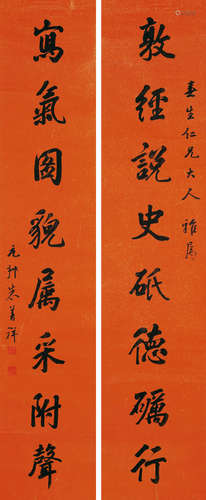 敦經說史砥德礪行
春生仁兄大人雅屬
寫氣圖貌属采附聲
元卿裘善祥